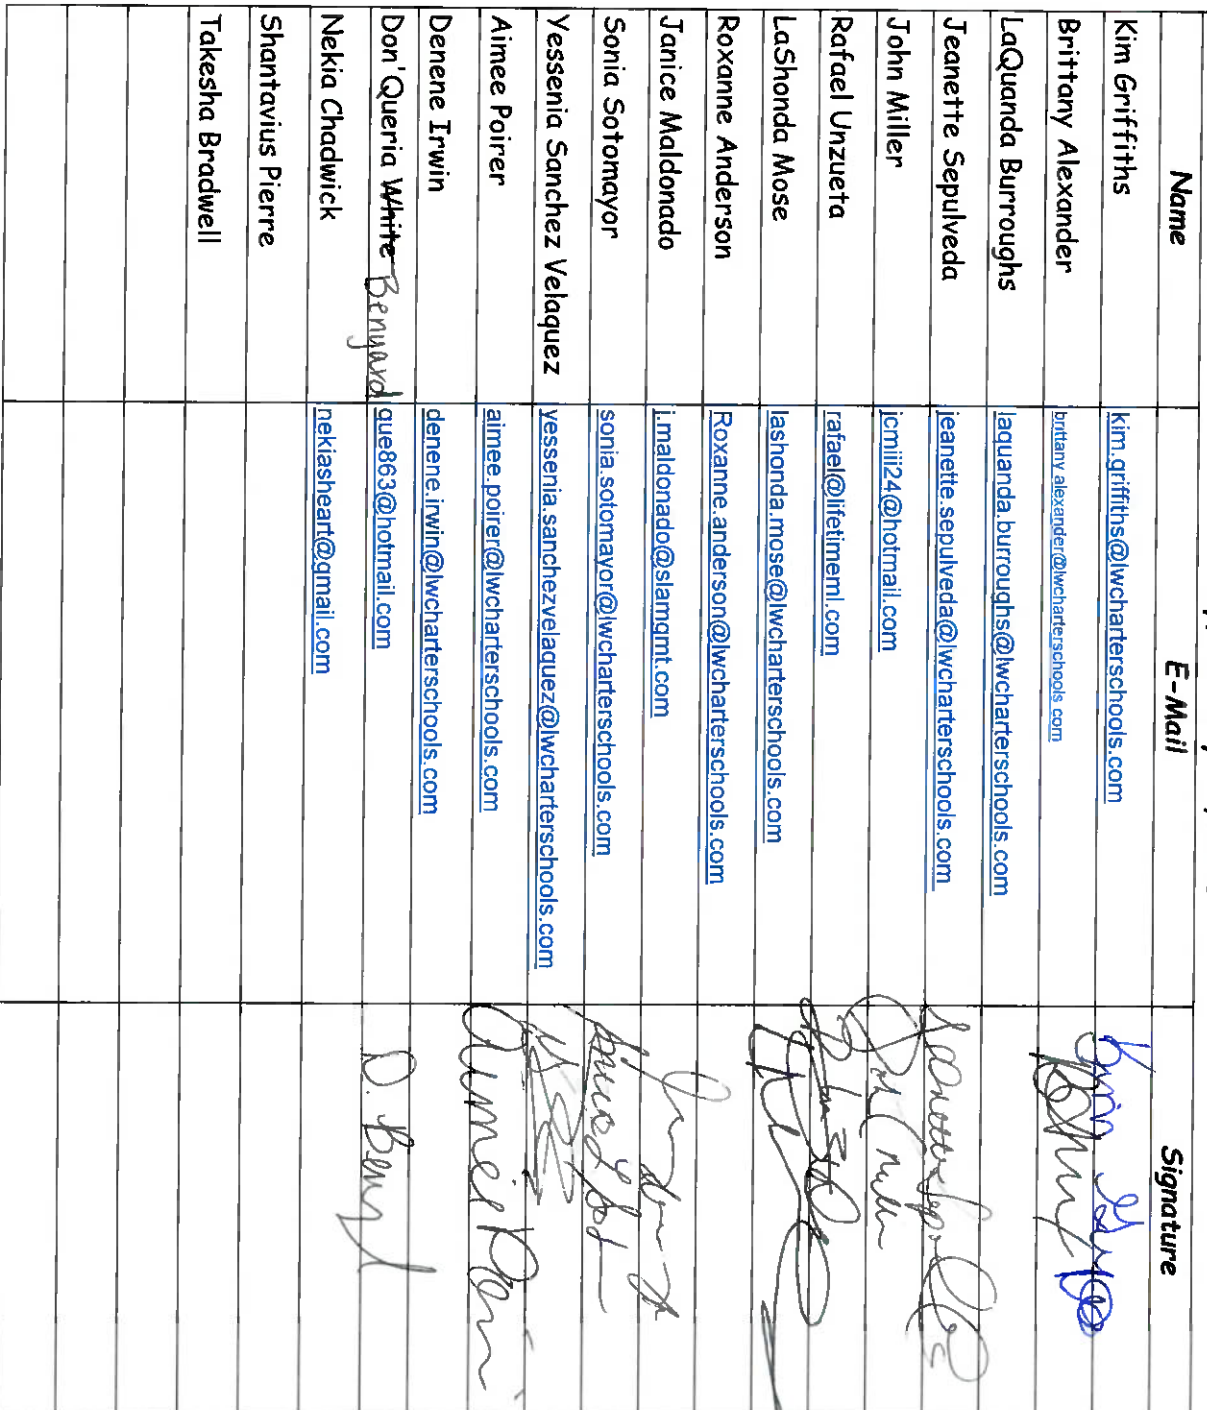 Name E-Mail Signature
Kim Griffiths kim.griffiths@lwcharterschools.com
Brittany Alexander brittany.alexander@lwcharterschools.com
LaQuanda Burroughs laquanda.burroughs@lwcharterschools.com
Jeanette Sepulveda jeanette.sepulveda@lwcharterschools.com
John Miller jcmiii24@hotmail.com
Rafael Unzueta rafael@lifetimeml.com
LaShonda Mose lashonda.mose@lwcharterschools.com
Roxanne Anderson Roxanne.anderson@lwcharterschools.com
Janice Maldonado j.maldonado@slamgmt.com
Sonia Sotomayor sonia.sotomayor@lwcharterschools.com
Yessenia Sanchez Velaquez yessenia.sanchezvelaquez@lwcharterschools.com
Aimee Poirer aimee.poirer@lwcharterschools.com
Denene Irwin denene.irwin@lwcharterschools.com
Don'Queria White Benyard que863@hotmail.com D. Beny
Nekia Chadwick nekiasheart@gmail.com
Shantavius Pierre
Takesha Bradwell